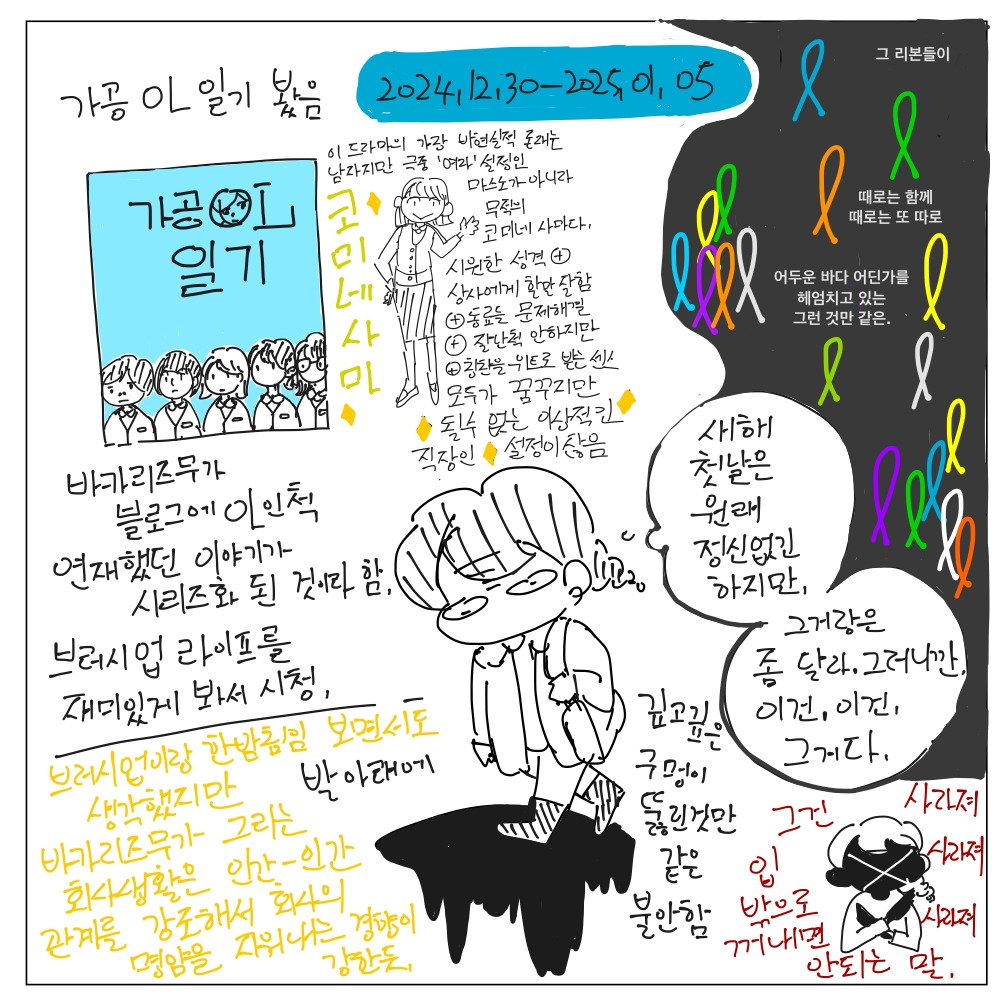 가공 OL 일기 봤음
2024.12.30-2025.01.05
가공OL
일기
이 드라마의 가장 비현실적 존재는
남자지만 극중 '여자' 설정인
마스노가 아니라
무적의
코미네 사마다.
코미네사마
시원한 성격 ⊕
상사에게 할말 잘함
⊕ 동료들 문제해결
⊕ 잘난척 안하지만
⊕ 칭찬을 위트로 받는 센스
모두가 꿈꾸지만
될수 없는 이상적인
직장인 설정이 많음
바카리즈무가
블로그에 OL인척
연재했던 이야기가
시리즈화 된 것이라 함.
브러시업 라이프를
재미있게 봐서 시청.
브러시업이랑 한밤중림 보면서도
생각했지만
바카리즈무가 그리는
회사생활은 인간-인간
관계를 강조해서 회사의
명암을 지워내는 경향이
강한듯.
그 리본들이
때로는 함께
때로는 또 따로
어두운 바다 어딘가를
헤엄치고 있는
그런 것만 같은.
새해
첫날은
원래
정신없긴
하지만.
그거랑은
좀 달라. 그러니깐.
이건, 이건,
그거다.
발 아래에
깊고깊은
구멍이
뚫린것만
같은
불안함
그건
입
밖으로
꺼내면
안되는 말.
사라져
사라져
사라져